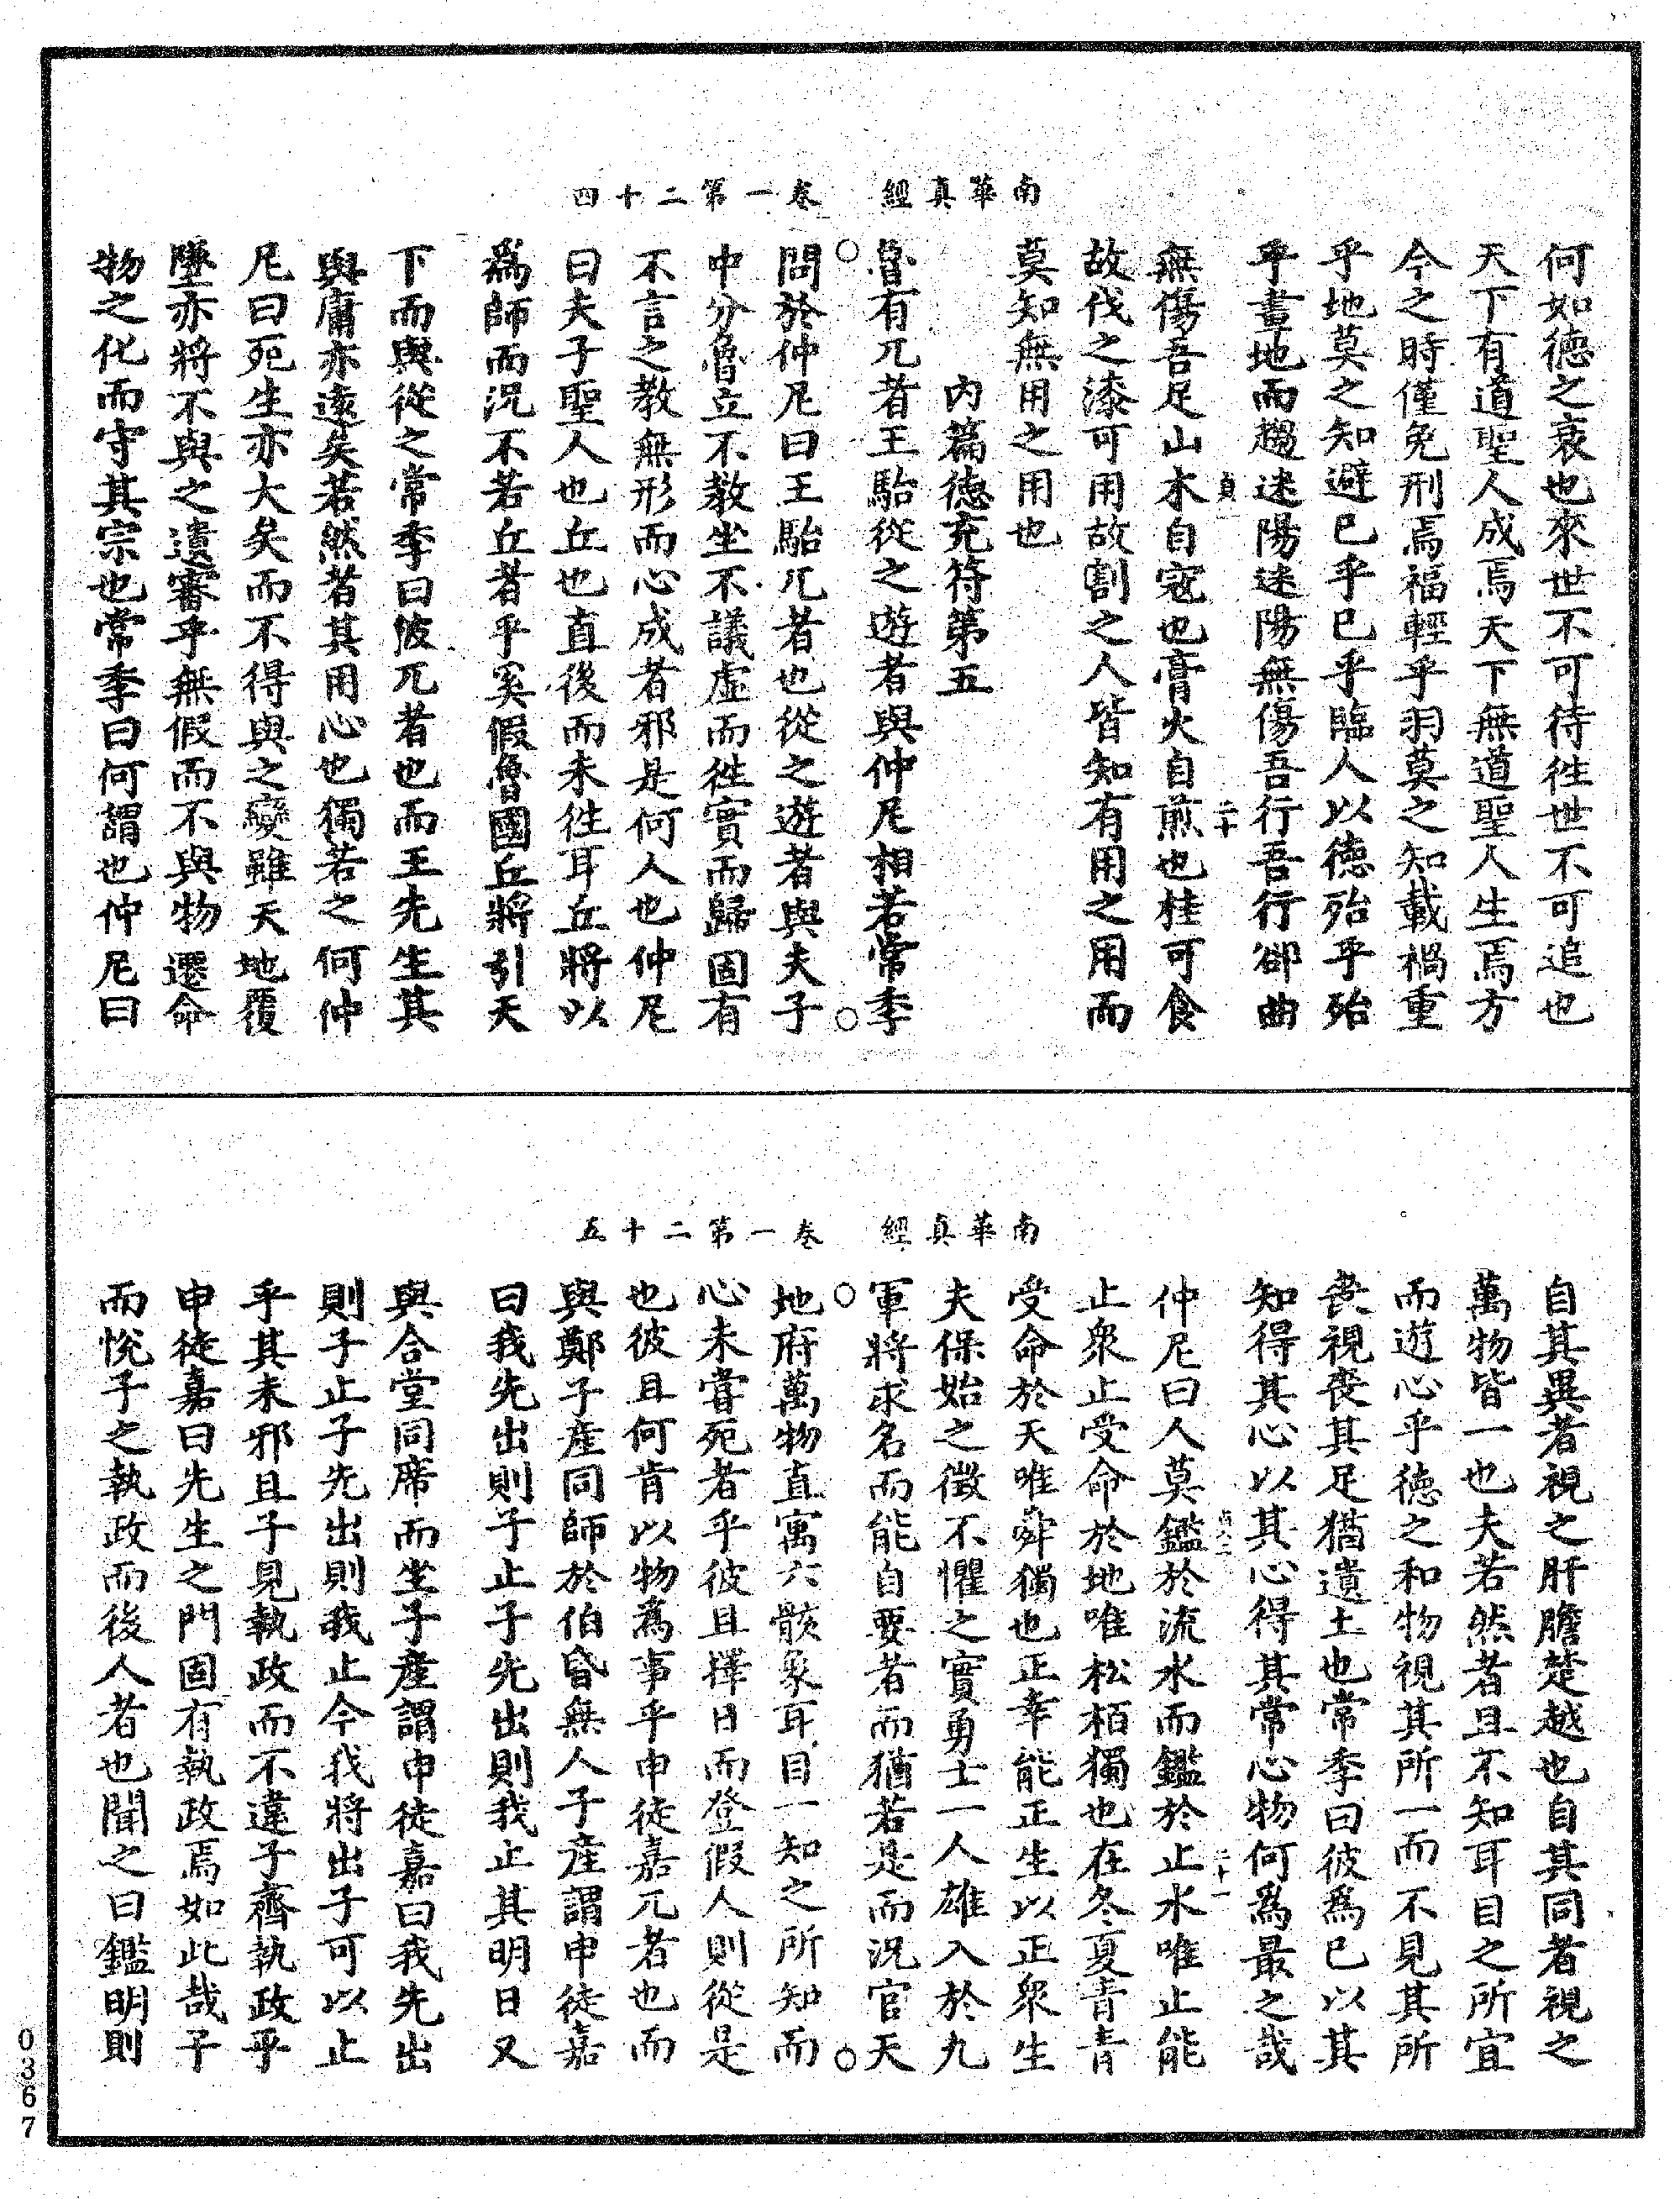 南華真經　卷一第二十四
何如德之衰也來世不可待往世不可追也
天下有道聖人成焉天下無道聖人生焉方
今之時僅免刑焉福輕乎羽莫之知載禍重
乎地莫之知避已乎已乎臨人以德殆乎殆
乎畫地而趨迷陽迷陽無傷吾行吾行郤曲
貞一　二十
無傷吾足山木自寇也膏火自煎也桂可食
故伐之漆可用故割之人皆知有用之用而
莫知無用之用也
內篇德充符第五
魯有兀者王駘從之遊者與仲尼相若常季
問於仲尼曰王駘兀者也從之遊者與夫子
中分魯立不教坐不議虛而往實而歸固有
不言之教無形而心成者邪是何人也仲尼
曰夫子聖人也丘也直後而未往耳丘將以
爲師而況不若丘者乎奚假魯國丘將引天
下而與從之常季曰彼兀者也而王先生其
與庸亦遠矣若然者其用心也獨若之何仲
尼曰死生亦大矣而不得與之變雖天地覆
墜亦將不與之遺審乎無假而不與物遷命
物之化而守其宗也常季曰何謂也仲尼曰
南華真經　卷一第二十五
自其異者視之肝膽楚越也自其同者視之
萬物皆一也夫若然者且不知耳目之所宜
而遊心乎德之和物視其所一而不見其所
喪視喪其足猶遺土也常季曰彼爲已以其
知得其心以其心得其常心物何爲最之哉
二十一
仲尼曰人莫鑑於流水而鑑於止水唯止能
止衆止受命於地唯松栢獨也在冬夏青青
受命於天唯舜獨也正幸能正生以正衆生
夫保始之徵不懼之實勇士一人雄入於九
軍將求名而能自要者而猶若是而況官天
地府萬物直寓六骸象耳目一知之所知而
心未嘗死者乎彼且擇日而登假人則從是
也彼且何肯以物爲事乎申徒嘉兀者也而
與鄭子産同師於伯昏無人子産謂申徒嘉
曰我先出則子止子先出則我止其明日又
與合堂同席而坐子産謂申徒嘉曰我先出
則子止子先出則我止今我將出子可以止
乎其未邪且子見執政而不違子齊執政乎
申徒嘉曰先生之門固有執政焉如此哉子
而悅子之執政而後人者也聞之曰鑑明則
0367